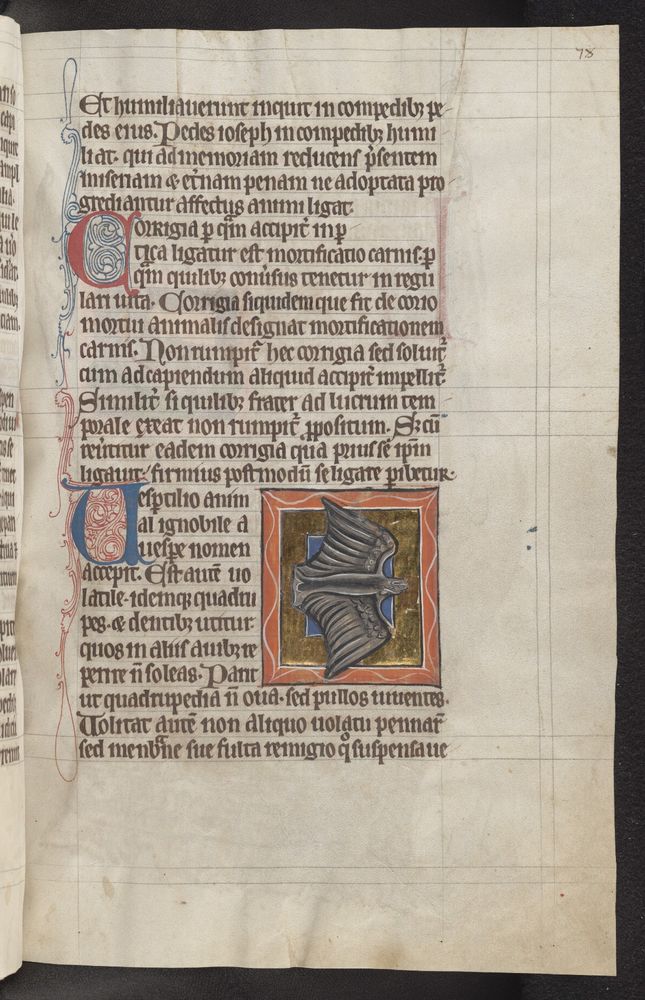 78
Et humiliauerunt inquit in compedibꝫ pe
des eius. Pedes ioseph in compedibꝫ humi
liat. qui ad memoriam reducens p̄sentem
miseriam ⁊ et̄nam penam ne adoptata pro
grediantur affectus animi ligat.
Corrigia ꝑ qm̄ accipit᷑ in ꝑ
tica ligatur est mortificatio carnis. ꝑ
qm̄ quilibꝫ conuersus tenetur in regu
lari uita. Corrigia siquidem que fit de corio
mortui animalis designat mortificationem
carnis. Non rumpit᷑ hec corrigia sed soluit᷑
cum ad capiendum aliquid accipit᷑ impellit᷑.
Similit᷑ si quilibꝫ frater ad lucrum tem
porale exeat non rumpit᷑ ꝓpositum. Sꝫ cū
reūtitur eadem corrigia qua prius se ip̄m
ligauit. firmius postmodū se ligare ꝓbetur.
Uesp̄tilio anim
al ignobile a
uespe nomen
accepit. Est autē uo
latile. idemqꝫ quadru
pes. ⁊ dentibꝫ utitur
quos in aliis auibꝫ re
perire n̄ soleas. Parit
ut quadrupedia n̄ oua. sed pullos uiuentes.
Uolitat autē non aliquo uolatu pennaꝝ
sed menb̄ne sue fulta remigio qͦ suspensa ue